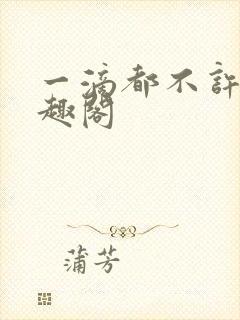 一滴都不许
趣阁
蒲芳